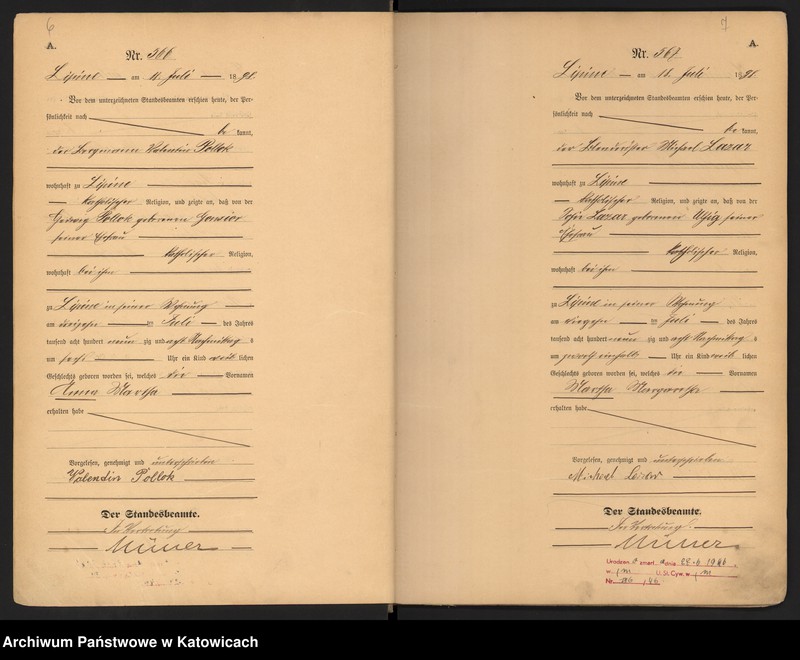 6
A.
Nr. 366
Lipine — am 11. Juli — 1898.
Vor dem unterzeichneten Standesbeamten erschien heute, der Per-
sönlichkeit nach
be kannt,
der Bergmann Valentin Pollok
wohnhaft zu Lipine
katholischer Religion, und zeigte an, daß von der
Hedwig Pollok geborenen Gonsior
seiner Ehefrau
katholischer Religion,
wohnhaft bei ihm
zu Lipine in seiner Wohnung
am ten Juli des Jahres
tausend acht hundert neun zig und acht Nachmittag s
um sechs Uhr ein Kind weib lichen
Geschlechts geboren worden sei, welches die Vornamen
Anna Martha
erhalten habe
Vorgelesen, genehmigt und unterschrieben
Valentin Pollok
Der Standesbeamte.
In Vertretung
Müller
7
A.
Nr. 367
Lipine — am Juli 1898.
Vor dem unterzeichneten Standesbeamten erschien heute, der Per-
sönlichkeit nach
be kannt,
der Michael Lazar
wohnhaft zu Lipine
katholischer Religion, und zeigte an, daß von der
Lazar geborenen seiner
Ehefrau
katholischer Religion,
wohnhaft bei ihm
zu Lipine in seiner Wohnung
am ten Juli des Jahres
tausend acht hundert neun zig und acht Nachmittag s
um Uhr ein Kind weib lichen
Geschlechts geboren worden sei, welches die Vornamen
Martha Margarethe
erhalten habe
Vorgelesen, genehmigt und unterschrieben
Michael Lazar
Der Standesbeamte.
In Vertretung
Müller
zmarł dnia
w U. St. Cyw. w
Nr.
Archiwum Państwowe w Katowicach